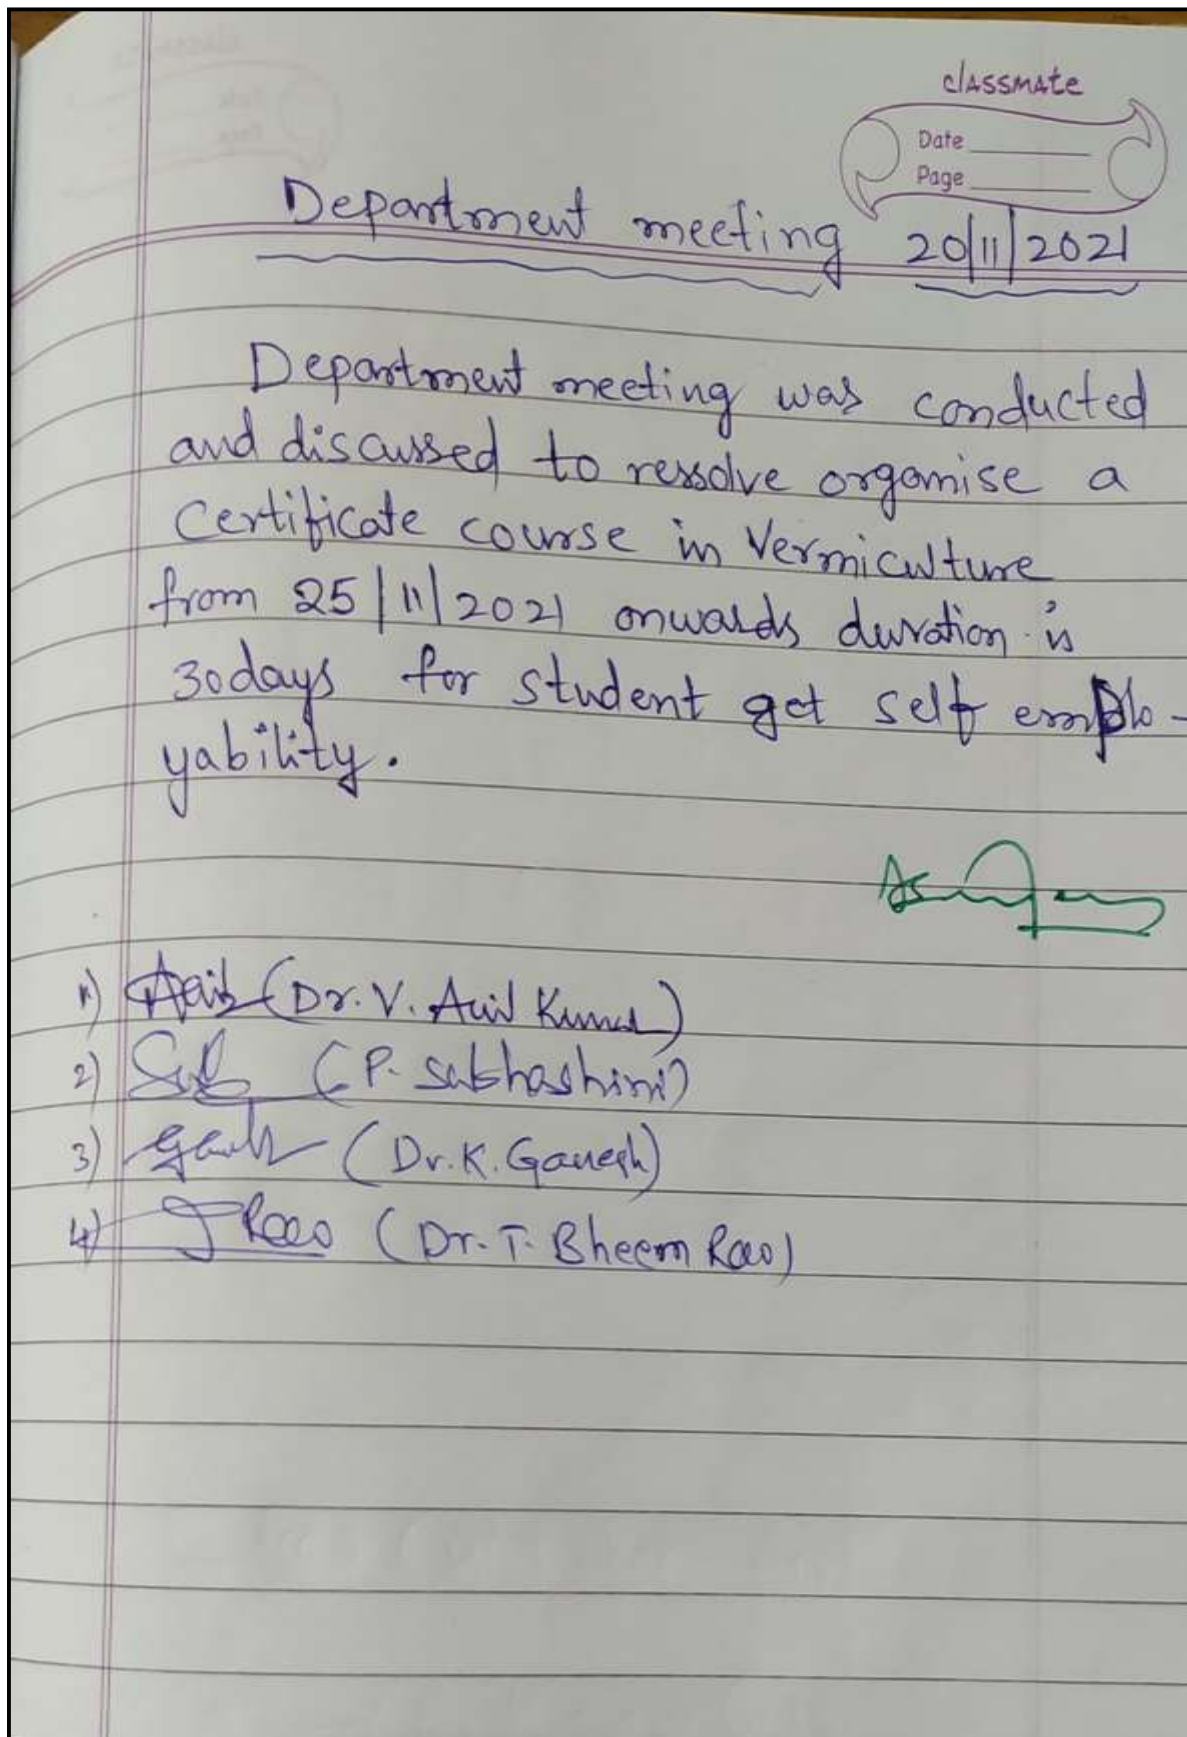 classmate
Date
Page
Department meeting 20/11/2021
Department meeting was conducted
and discussed to ressolve organise a
Certificate course in Vermiculture
from 25/11/2021 onwards duration is
30days for student get self emplo-
yability.
1) (Dr. V. Anil Kumar)
2) (P. Subhashini)
3) (Dr. K. Ganesh)
4) TRao (Dr. T. Bheem Rao)